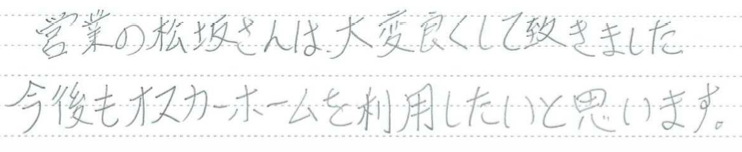 営業の松坂さんは、大変良くして致きました
今後もオスカーホームを利用したいと思います。